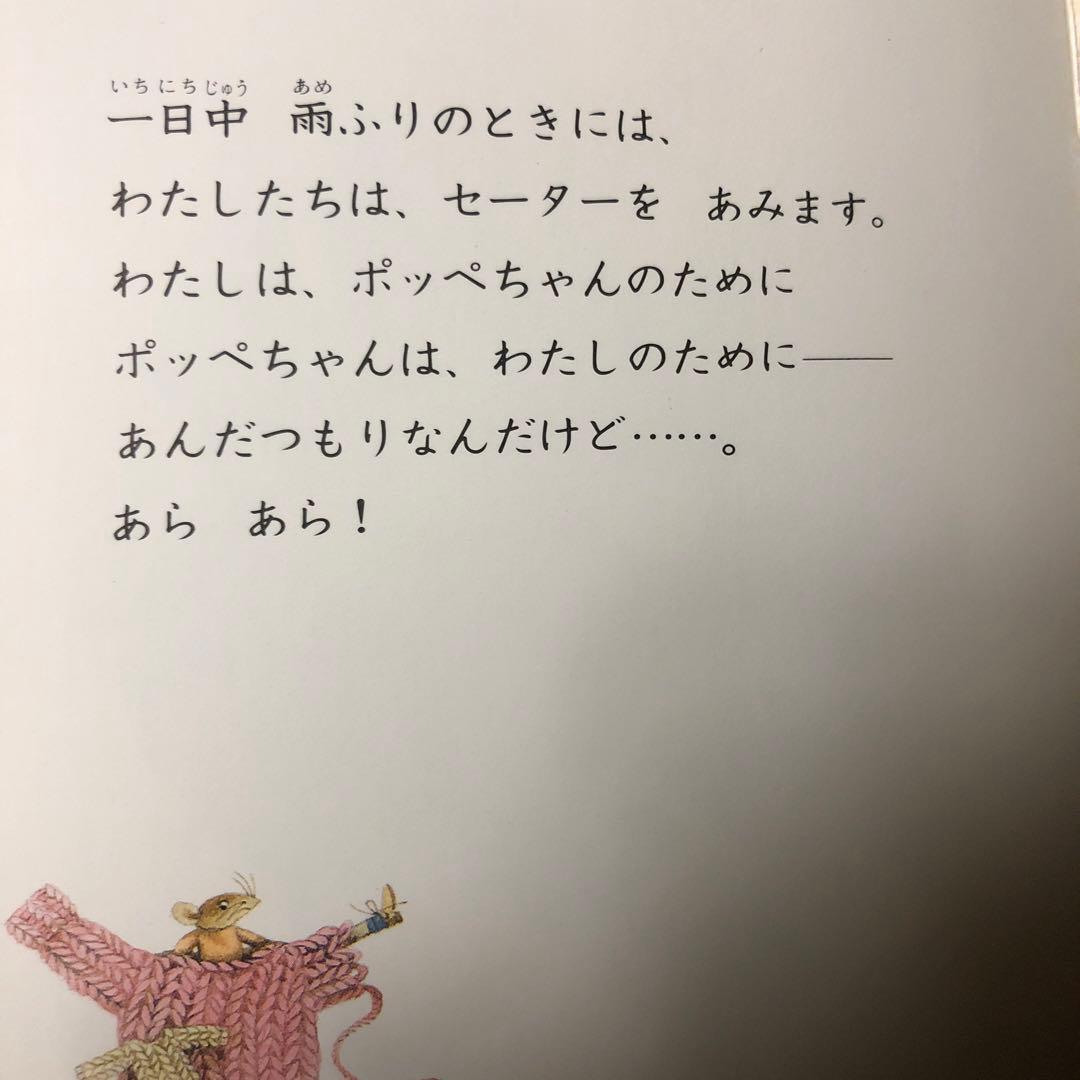 一日中　雨ふりのときには、
わたしたちは、セーターを　あみます。
わたしは、ポッペちゃんのために
ポッペちゃんは、わたしのために――
あんだつもりなんだけど……。
あら　あら！